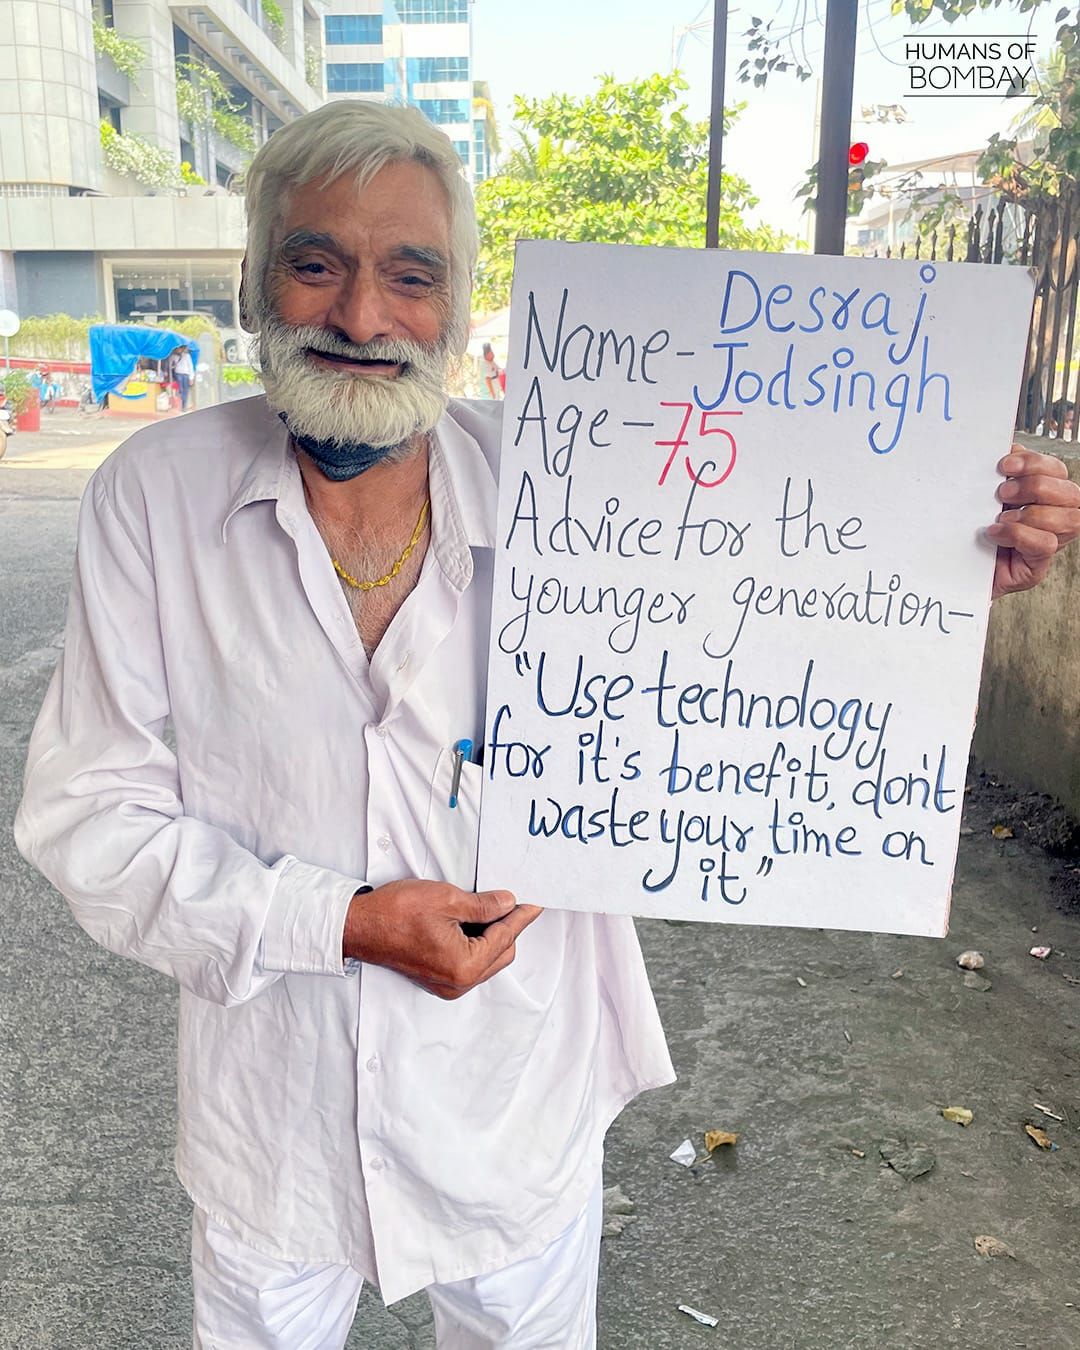 HUMANS OF
BOMBAY
Name - Desraj
Jodsingh
Age - 75
Advice for the
younger generation -
"Use technology
for it's benefit, don't
waste your time on
it"